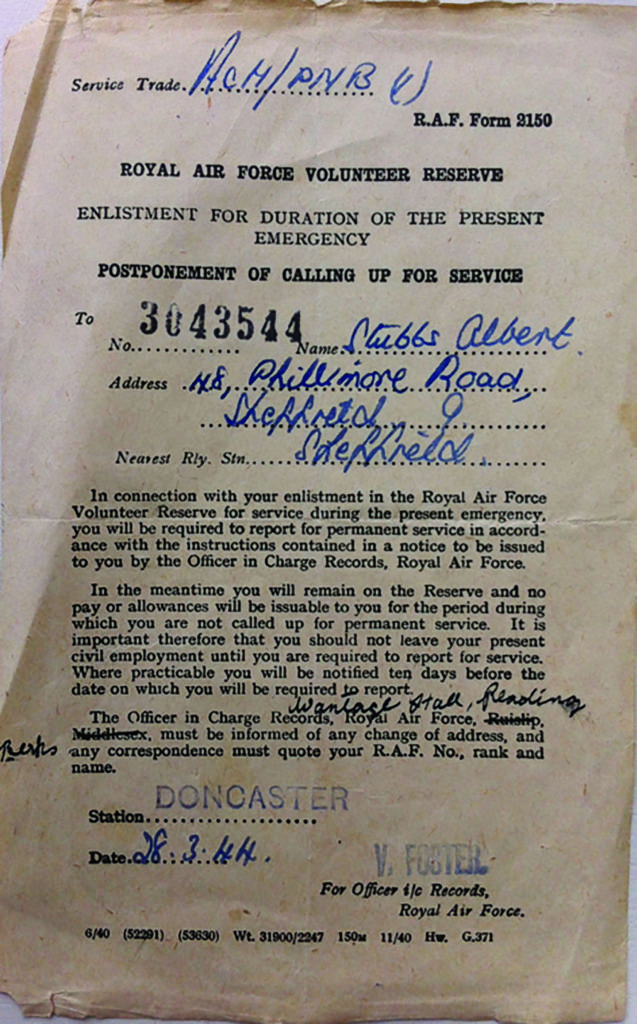 Service Trade. ACH/PNB (1)
R.A.F. Form 2150
ROYAL AIR FORCE VOLUNTEER RESERVE
ENLISTMENT FOR DURATION OF THE PRESENT
EMERGENCY
POSTPONEMENT OF CALLING UP FOR SERVICE
To
No. 3043544 Name Stubbs Albert.
Address 48, Phillimore Road,
Sheffield 9.
Nearest Rly. Stn. Sheffield.
In connection with your enlistment in the Royal Air Force
Volunteer Reserve for service during the present emergency,
you will be required to report for permanent service in accord-
ance with the instructions contained in a notice to be issued
to you by the Officer in Charge Records, Royal Air Force.
In the meantime you will remain on the Reserve and no
pay or allowances will be issuable to you for the period during
which you are not called up for permanent service. It is
important therefore that you should not leave your present
civil employment until you are required to report for service.
Where practicable you will be notified ten days before the
date on which you will be required to report.
Wantage Hall, Reading
The Officer in Charge Records, Royal Air Force, Ruislip,
Berks Middlesex, must be informed of any change of address, and
any correspondence must quote your R.A.F. No., rank and
name.
Station DONCASTER
Date. 28.3.44.
V. FOSTER.
For Officer i/c Records,
Royal Air Force.
6/40 (52291) (53630) Wt. 31900/2247 150M 11/40 Hw. G.371